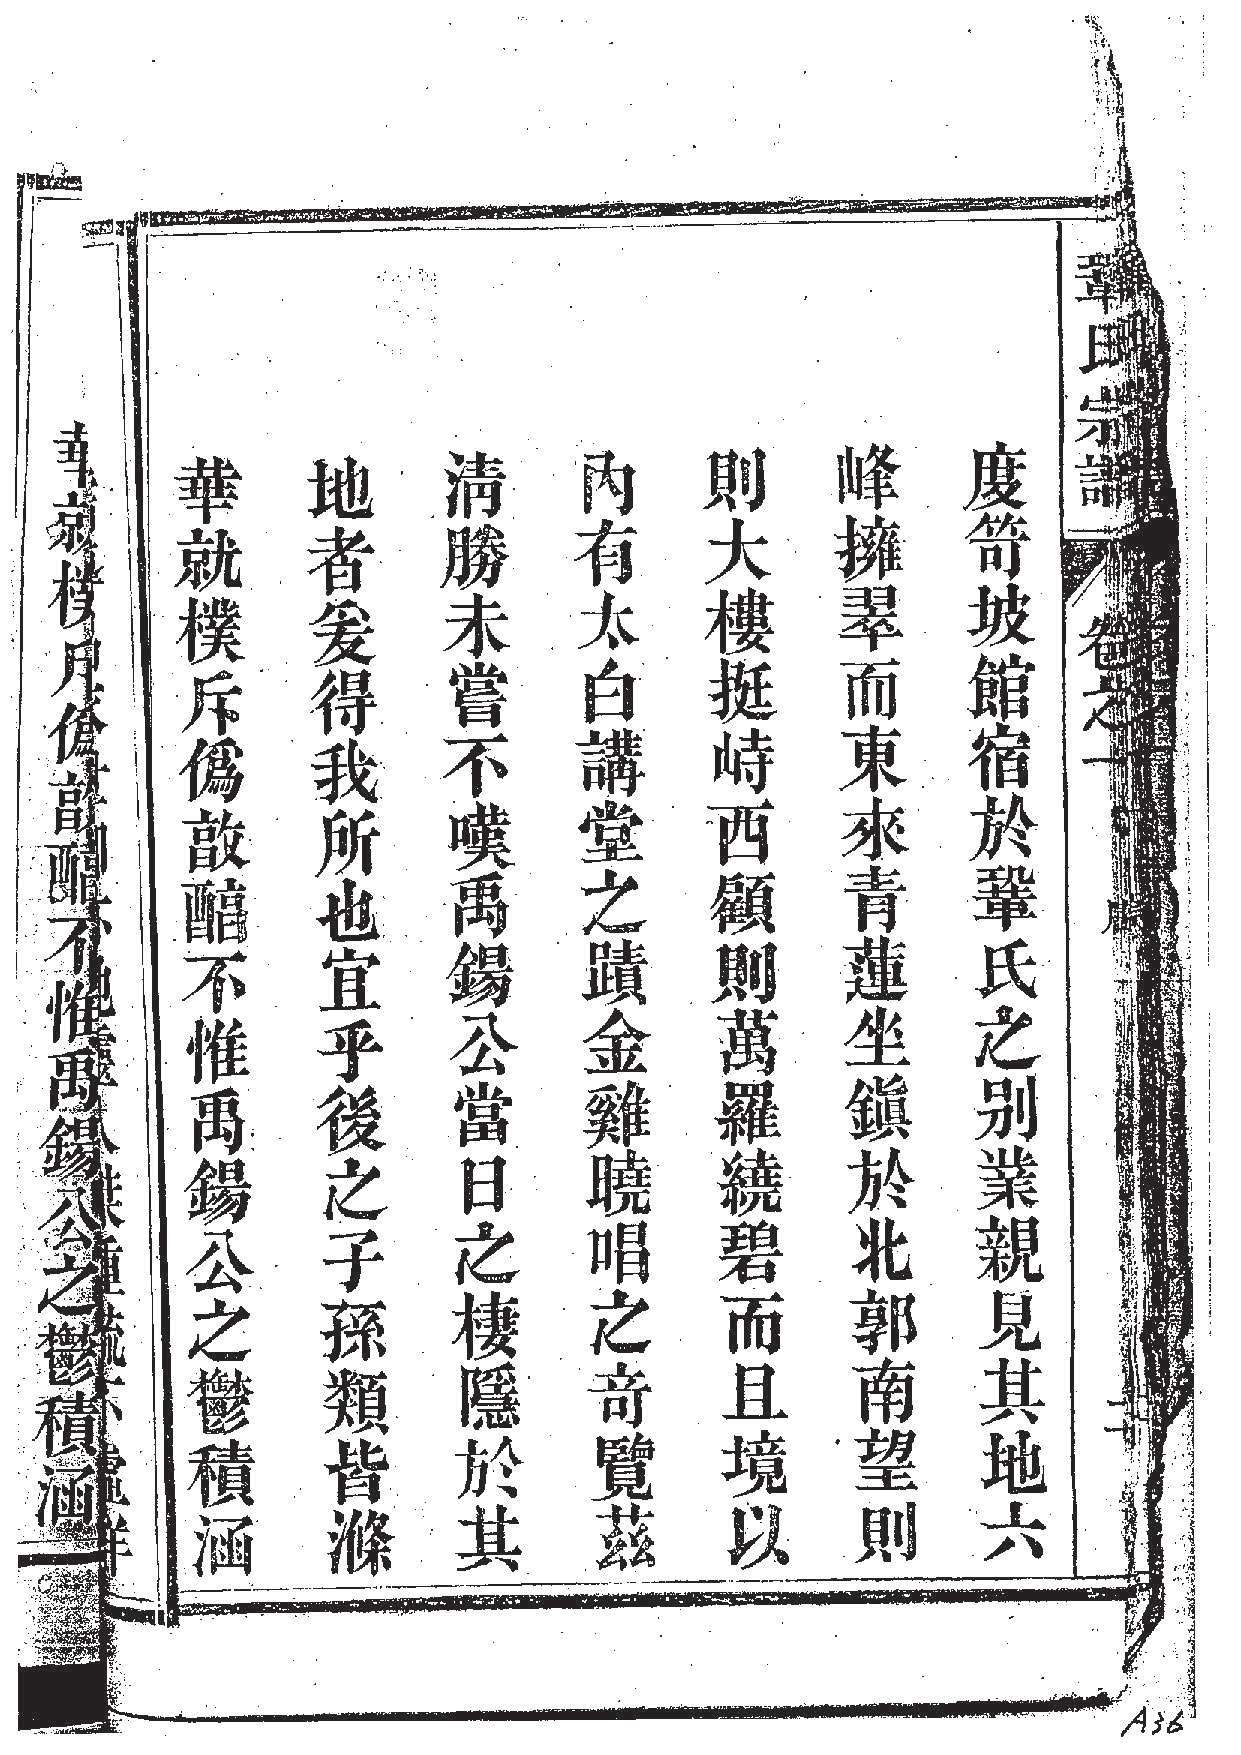 鞏氏宗譜 卷之一 序 二
度笥坡館宿於鞏氏之别業親見其地六
峰擁翠而東來青蓮坐鎭於北郭南望則
則大樓挺峙西顧則萬羅繞碧而且境以
內有太白講堂之蹟金雞曉唱之奇覽茲
淸勝未嘗不嘆禹錫公當日之棲隱於其
地者爰得我所也宜乎後之子孫類皆滌
華就樸斥僞敦醕不惟禹錫公之鬱積涵
樸斥
醕不惟禹錫公之鬱積涵
A36